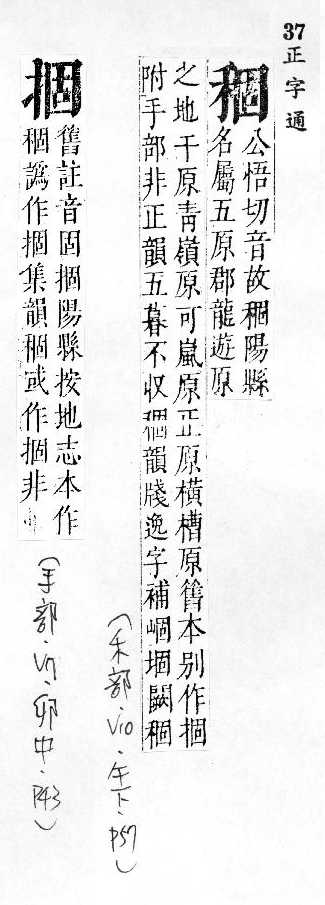 37 正字通
稒 公悟切音故稒陽縣
名屬五原郡龍遊原
之地干原靑嶺原可嵐原正原橫槽原舊本別作㧽
附手部非正韻五暮不收稒韻牋逸字補崓堌闕稒
(禾部·V10·午下·P57)
㧽 舊註音固㧽陽縣按地志本作
稒譌作㧽集韻稒或作㧽非
(手部·V7·卯中·P43)